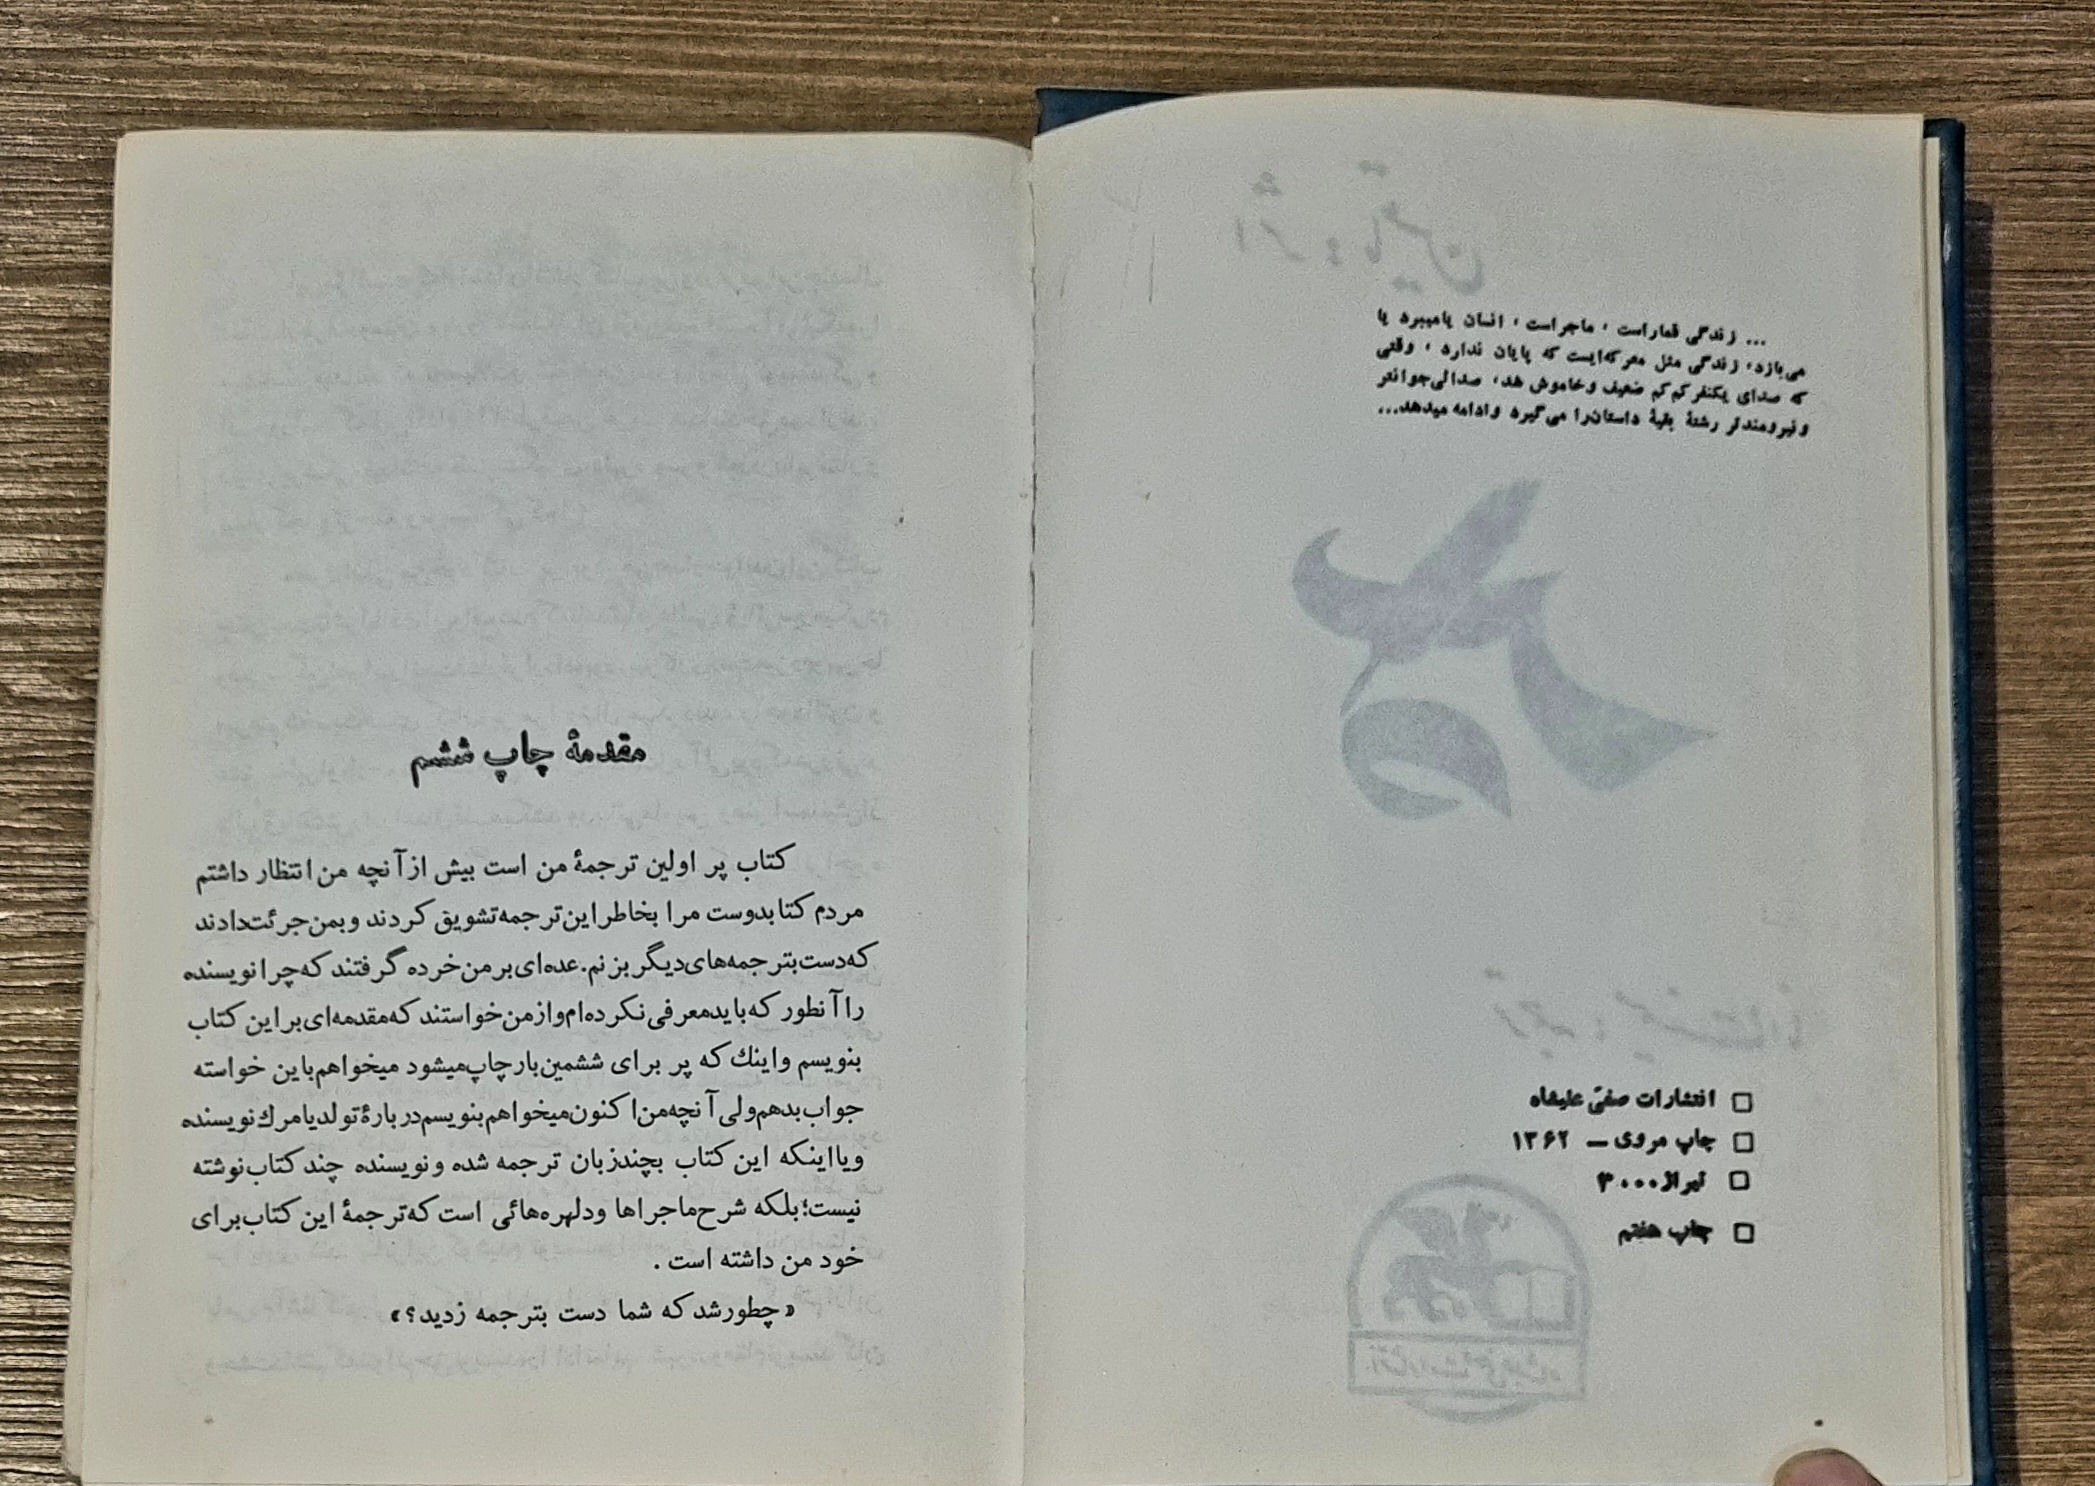 ... زندگی قماراست ، ماجراست ، انسان یامیبرد یا
می‌بازد، زندگی مثل معرکه‌ایست که پایان ندارد ، وقتی
که صدای یکنفر کم کم ضعیف وخاموش شد، صدائی‌جوانتر
ونیرومندتر رشتهٔ بقیهٔ داستان‌را می‌گیرد وادامه میدهد...
□ انتشارات صفی علیشاه
□ چاپ مروی – ۱۳۶۲
□ تیراژ ۳۰۰۰
□ چاپ هفتم
مقدمهٔ چاپ ششم
کتاب پر اولین ترجمهٔ من است بیش از آنچه من انتظار داشتم
مردم کتابدوست مرا بخاطر این ترجمه تشویق کردند وبمن جرئت‌دادند
که دست بترجمه‌های دیگر بزنم. عده‌ای بر من خرده گرفتند که چرا نویسنده
را آنطور که باید معرفی نکرده‌ام واز من خواستند که مقدمه‌ای بر این کتاب
بنویسم واینك که پر برای ششمین بار چاپ میشود میخواهم باین خواسته
جواب بدهم ولی آنچه من اکنون میخواهم بنویسم دربارهٔ تولد یا مرك نویسنده
ویا اینکه این کتاب بچند زبان ترجمه شده ونویسنده چند کتاب نوشته
نیست؛ بلکه شرح ماجراها ودلهره‌هائی است که ترجمهٔ این کتاب برای
خود من داشته است .
«چطور شد که شما دست بترجمه زدید؟»